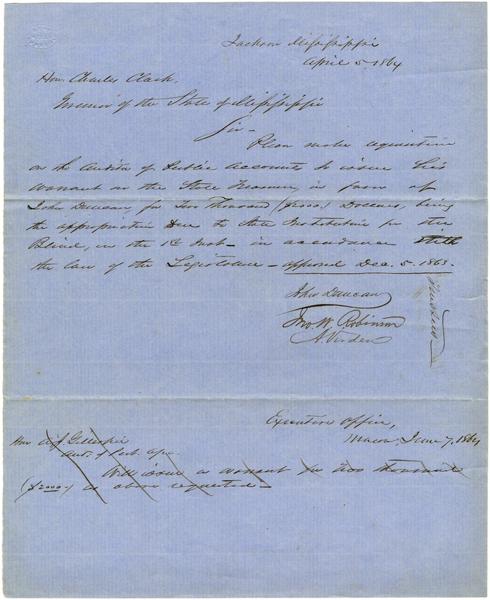 Jackson Mississippi
April 5. 1864
Hon. Charles Clark,
Governor of the State of Mississippi
Sir -
Please make requisition
on the Auditor of Public Accounts to issue his
warrant on the State Treasury in favor of
John Duncan for Two Thousand (2000.) Dollars, being
the appropriation due to State Institution for the
Blind, on the 1st inst - in accordance with
the law of the Legislature - approved Dec. 5. 1863.
John Duncan
Jno. W. Robinson
A. Virden
Trustees
Executive Office,
Macon, June 7, 1864
Hon A. J. Gillespie
Aud. of Pub. Acc.
Will issue a warrant for two thousand
($2000) as above requested -